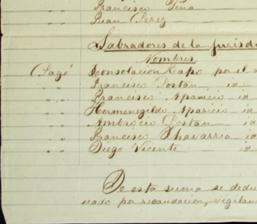 Francisco Peña
Juan Perez
Labradores de la Jurisd
Nombres
Pagó Consolacion Capo por el
Francisco Dostán id
Francisco Aparicio id
Hermenegildo Aparicio id
Ambrocio Dostán id
Francisco Chavarria id
Diego Vicente id
De esta suma se dedu
cado por recaudacion, vigilan